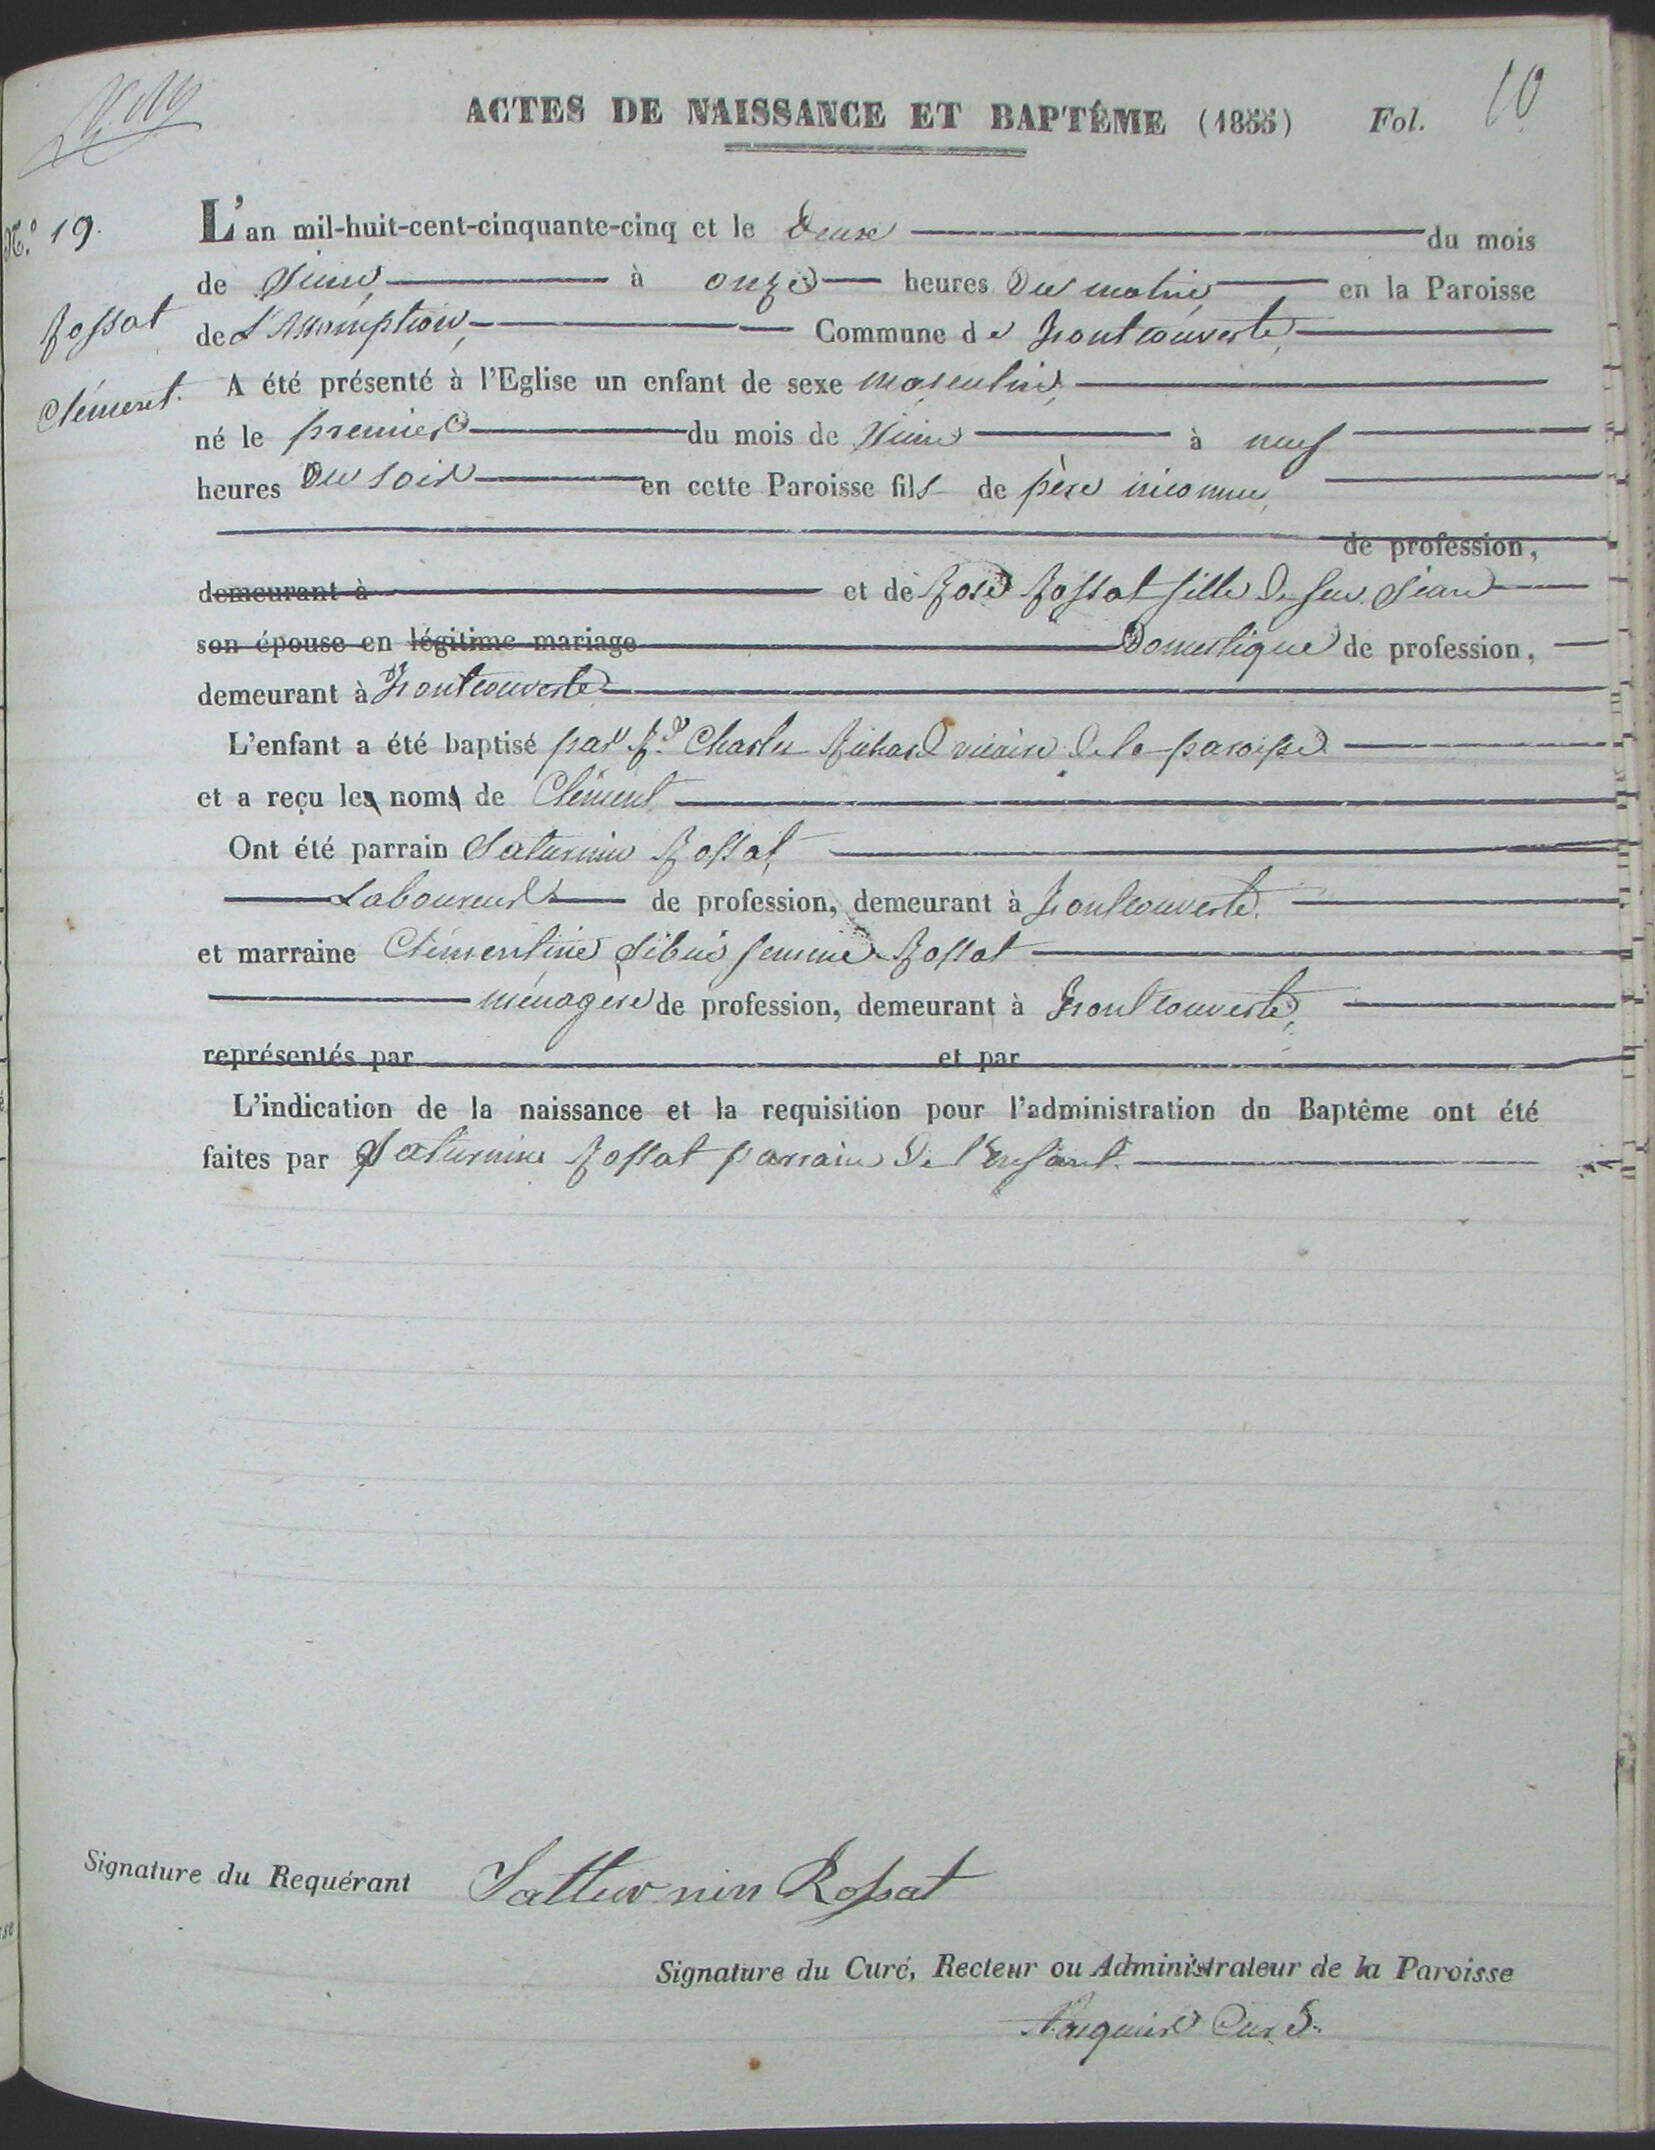 ACTES DE NAISSANCE ET BAPTÊME (1855) Fol. 10
N.º 19.
Rossat
Clément.
L'an mil-huit-cent-cinquante-cinq et le deux du mois
de Juin, à onze heures du matin en la Paroisse
de L'Assomption, Commune de Montcouverte,
A été présenté à l'Eglise un enfant de sexe masculin,
né le premier du mois de Juin à neuf
heures du soir en cette Paroisse fils de père inconnu,
de profession,
demeurant à et de Rose Rossat fille de feu Jean
son épouse en légitime mariage Domestique de profession,
demeurant à Montcouverte
L'enfant a été baptisé par R.d Charles Richard vicaire de la paroisse
et a reçu les noms de Clément
Ont été parrain Saturnin Rossat,
Laboureur de profession, demeurant à Montcouverte,
et marraine Clémentine Sibué femme Rossat
ménagère de profession, demeurant à Montcouverte,
représentés par et par
L'indication de la naissance et la requisition pour l'administration du Baptême ont été
faites par Saturnin Rossat parrain de l'Enfant.
Signature du Requérant Satturnin Rossat
Signature du Curé, Recteur ou Administrateur de la Paroisse
Curé.